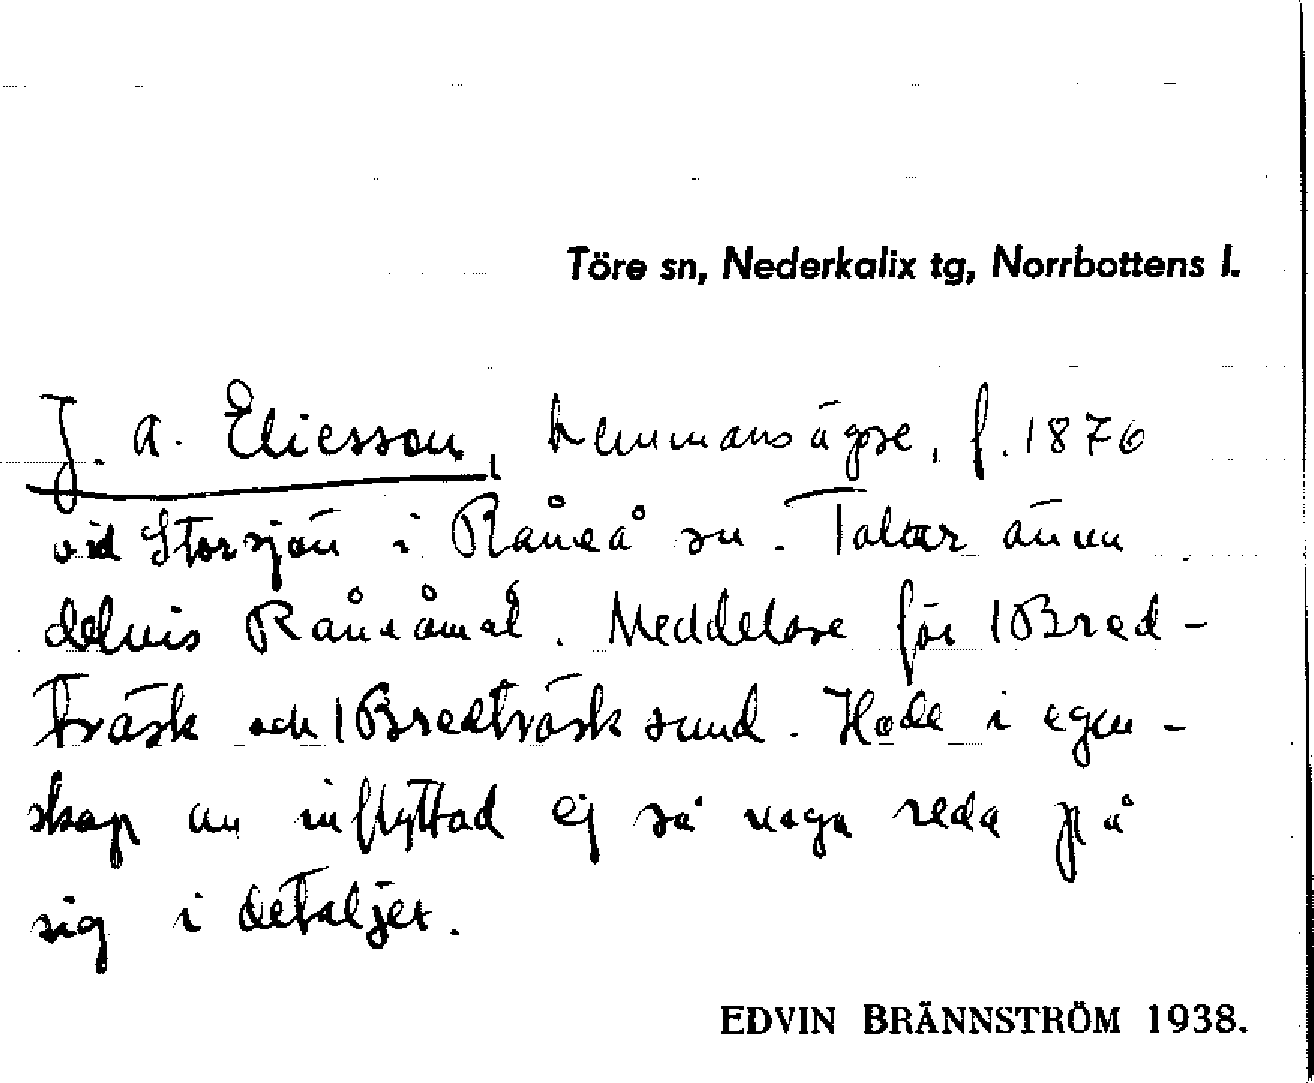 Töre sn, Nederkalix tg, Norrbottens l.
J. A. Eliesson, hemmansägare, f. 1876
vid Storsjön i Råneå sn. Talar ännu
delvis Rånåmål. Meddelare för 1 Bred-
träsk och 1 Bredträsksund. Hade i egen-
skap av inflyttad ej så noga reda på
sig i detaljer.
EDVIN BRÄNNSTRÖM 1938.